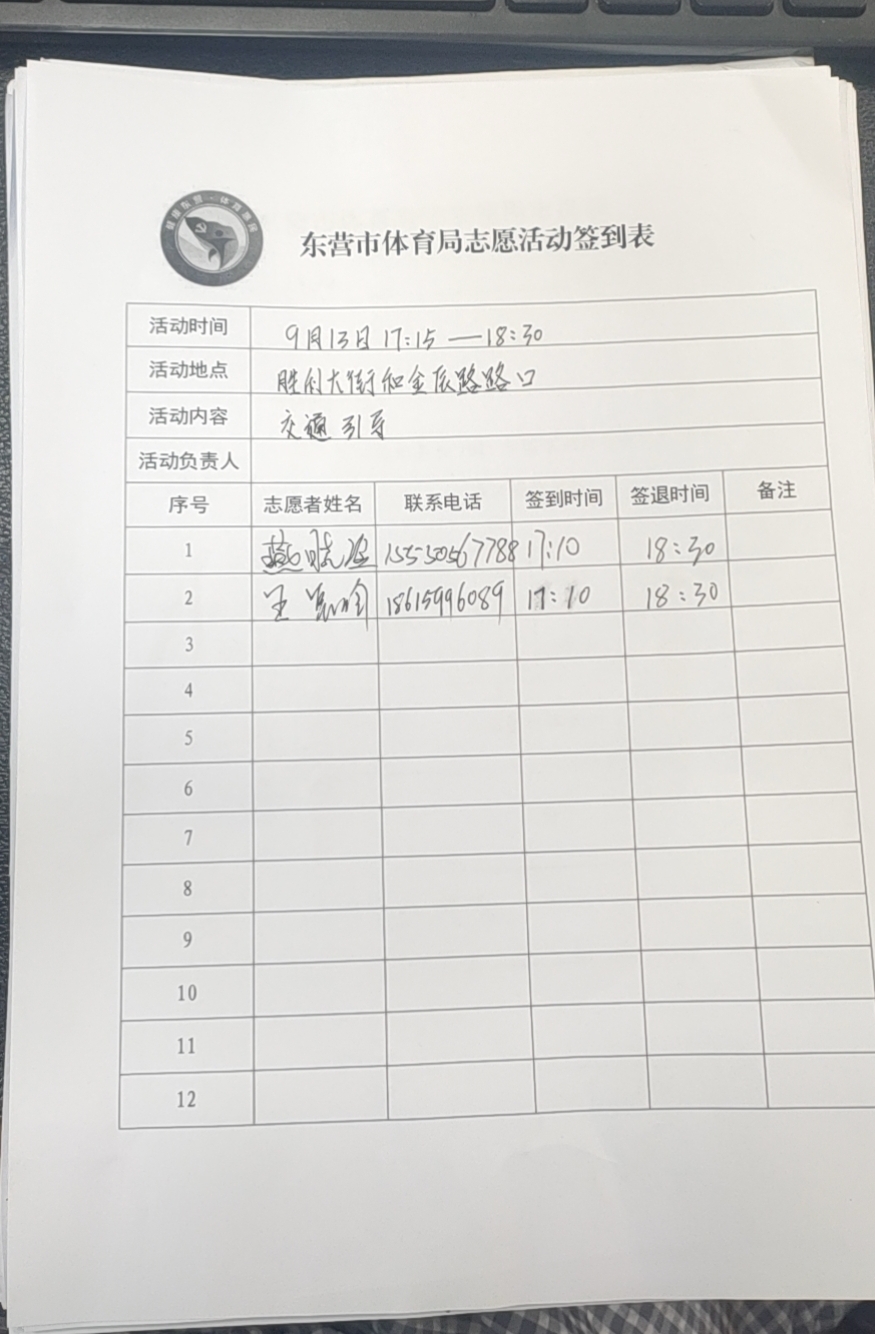 东营市体育局志愿活动签到表
活动时间 9月13日 17:15 — 18:30
活动地点 胜利大街和金辰路路口
活动内容 交通引导
活动负责人
序号 志愿者姓名 联系电话 签到时间 签退时间 备注
1 燕晓 15550567788 17:10 18:30
2 王 18615996089 17:10 18:30
3
4
5
6
7
8
9
10
11
12